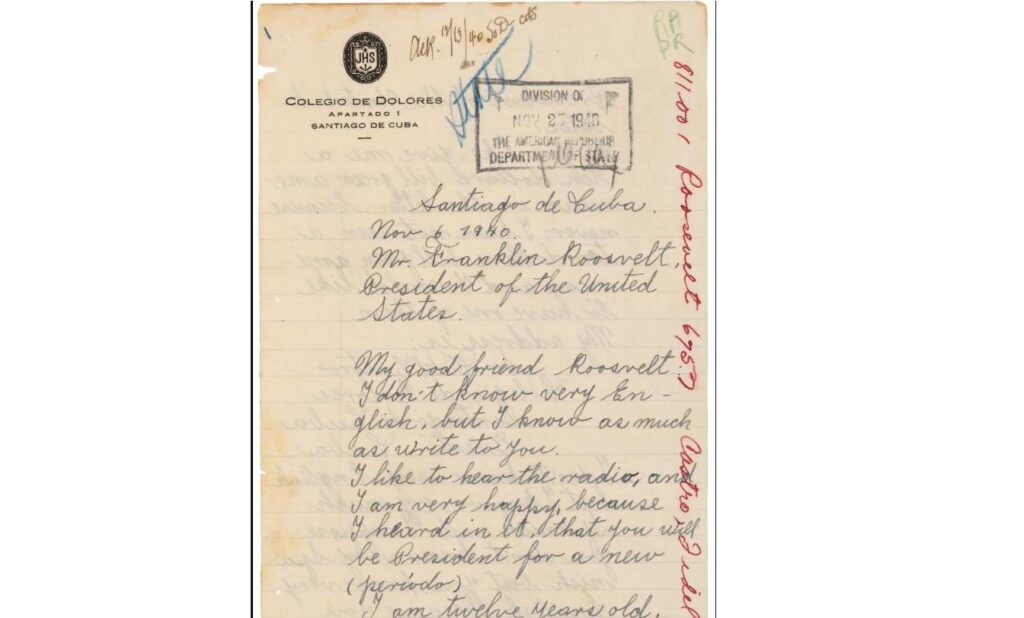 1
JHS
COLEGIO DE DOLORES
APARTADO 1
SANTIAGO DE CUBA
State
DIVISION OF
NOV 27 1940
THE AMERICAN REPUBLICS
DEPARTMENT OF STATE
Santiago de Cuba.
Nov 6 1940.
Mr. Franklin Roosvelt,
President of the United
States.
My good friend Roosvelt
I don't know very En-
glish, but I know as much
as write to you.
I like to hear the radio, and
I am very happy, because
I heard in it, that you will
be President for a new
(período)
I am twelve years old.
811.001 Roosevelt
Castro, Fidel